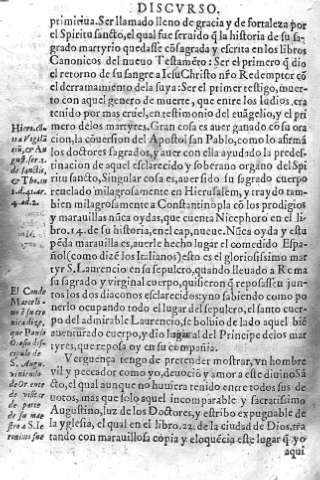 DISCVRSO.
primiriua. Ser llamado lleno de gracia y de fortaleza por
el Spiritu sancto, el qual fue seruido q̃ la historia de su sa-
grado martyrio quedasse cõsagrada y escrita en los libros
Canonicos del nueuo Testamẽto: Ser el primero q̃ dio
el retorno de su sangre a Iesu Christo nr̃o Redemptor cõ
el derramamiento dela suya: Ser el primer testigo, muer-
to con aquel genero de muerte, que entre los Iudios, era
tenido por mas cruel, en testimonio del euãgelio, y el pri
mero delos martyres. Gran cosa es auer ganado cõ su ora
cion, la cõuersion del Apostol san Pablo, como lo afirmã
los doctores sagrados, y auer con ella ayudado la predes-
tinacion de aquel esclarecido y soberano organo del Spi
ritu sancto, Singular cosa es, auer sido su sagrado cuerpo
reuelado milagrosamente en Hierusalẽm, y traydo tam-
bien milagrosamente a Constantinopla cõ los prodigios
y marauillas nũca oydas, que cuenta Nicephoro en el li-
bro. 14. de su historia, en el cap, nueue. Nũca oyda y estu
pẽda marauilla es, auerle hecho lugar el comedido Espa-
ñol (como dizẽ los Italianos) esto es el gloriosissimo mar
tyr S. Laurencio en su sepulcro, quando lleuado a Roma
su sagrado y virginal cuerpo, quisieron q̃ reposasse ̃n jun
tos los dos diaconos esclarecidos: y no sabiendo como po
nerlo ocupando todo el lugar del sepulcro, el santo cuer-
po del admirable Laurencio, se boluio de lado aquel biẽ
auenturado cuerpo, y dio lugar al del Principe delos mar
tyres, que reposa oy en su compañia.
Verguença tengo de pretender mostrar, vn hombre
vil y peccador como yo, deuociõ y amor a este diuino Sã
cto, el qual aunque no huuiera tenido entre todos sus de
uotos, mas que solo aquel incomparable y sacratissimo
Augustino, luz de los Doctores, y estribo expugnable de
la yglesia, el qual en el libro. 22. de la ciudad de Dios, tra
tando con marauillosa copia y eloquẽcia este lugar q̃ yo
aqui
El Conde
Marceli-